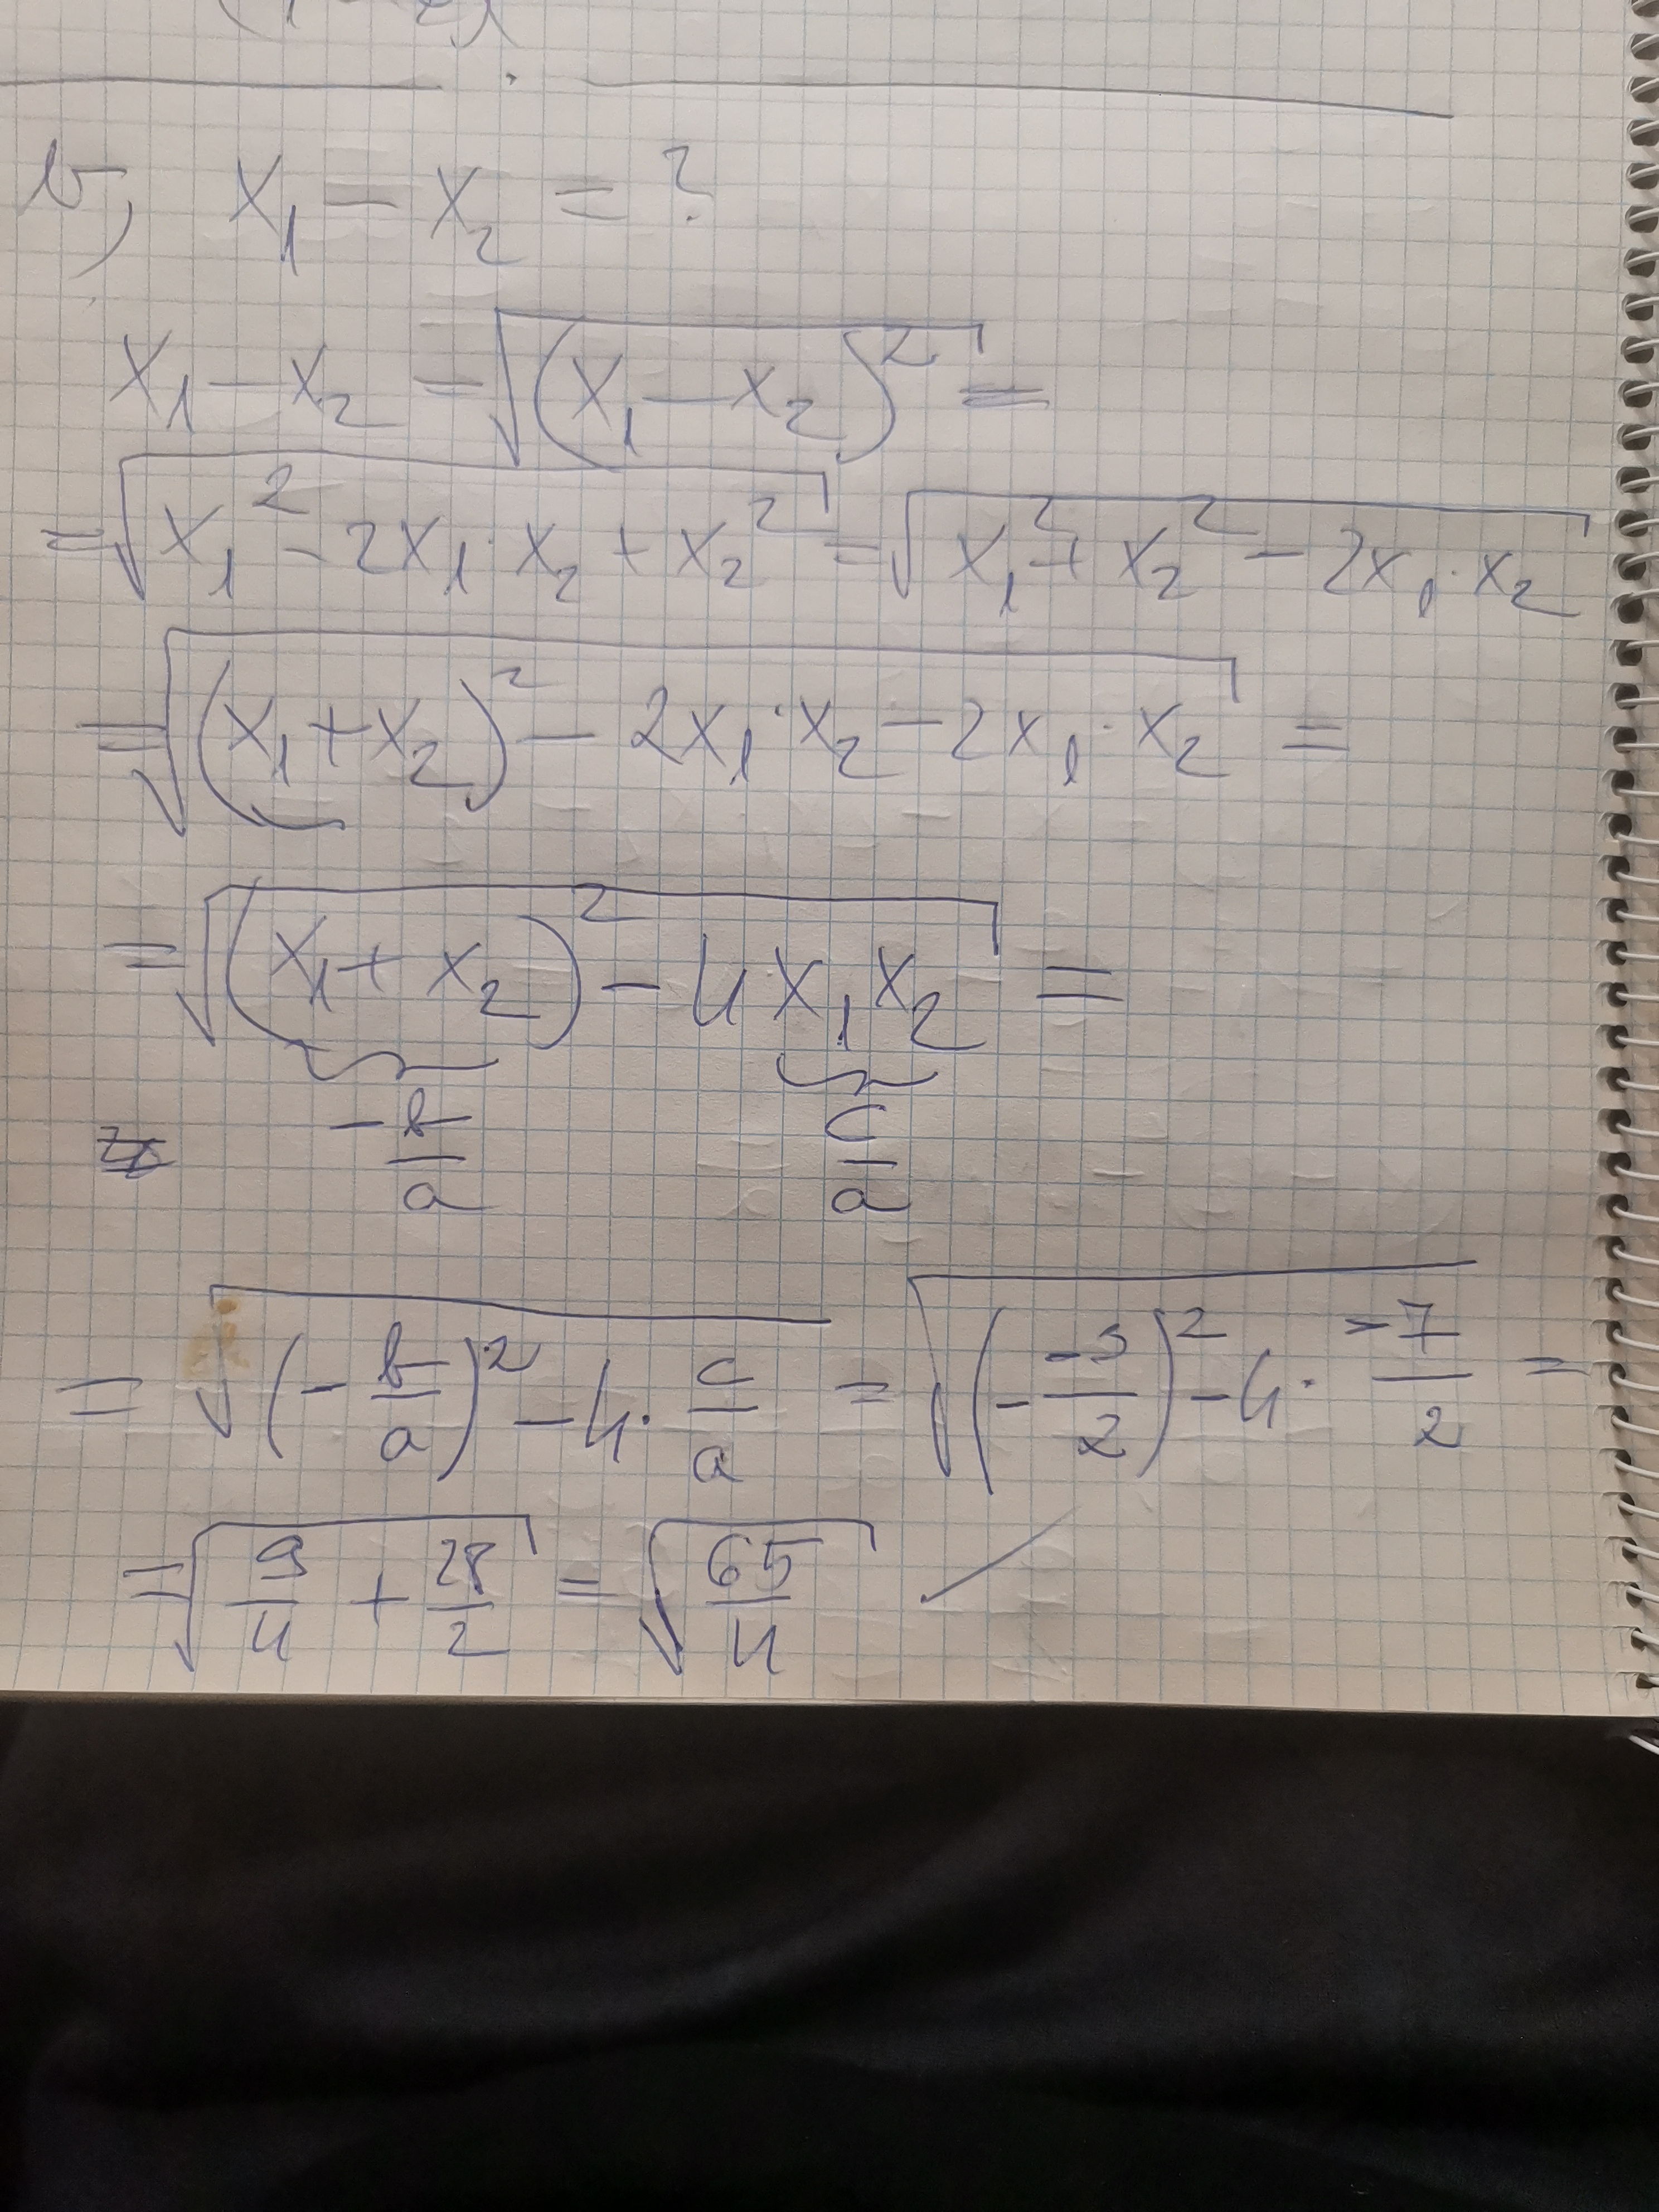 b, x₁ - x₂ = ?
x₁ - x₂ = √((x₁ - x₂)²) =
= √(x₁² - 2x₁·x₂ + x₂²) = √(x₁² + x₂² - 2x₁·x₂)
= √((x₁ + x₂)² - 2x₁·x₂ - 2x₁·x₂) =
= √((x₁ + x₂)² - 4x₁x₂) =
-b/a c/a
= √((-b/a)² - 4·c/a) = √((- -3/2)² - 4· -7/2) =
= √(9/4 + 28/2) = √(65/4)